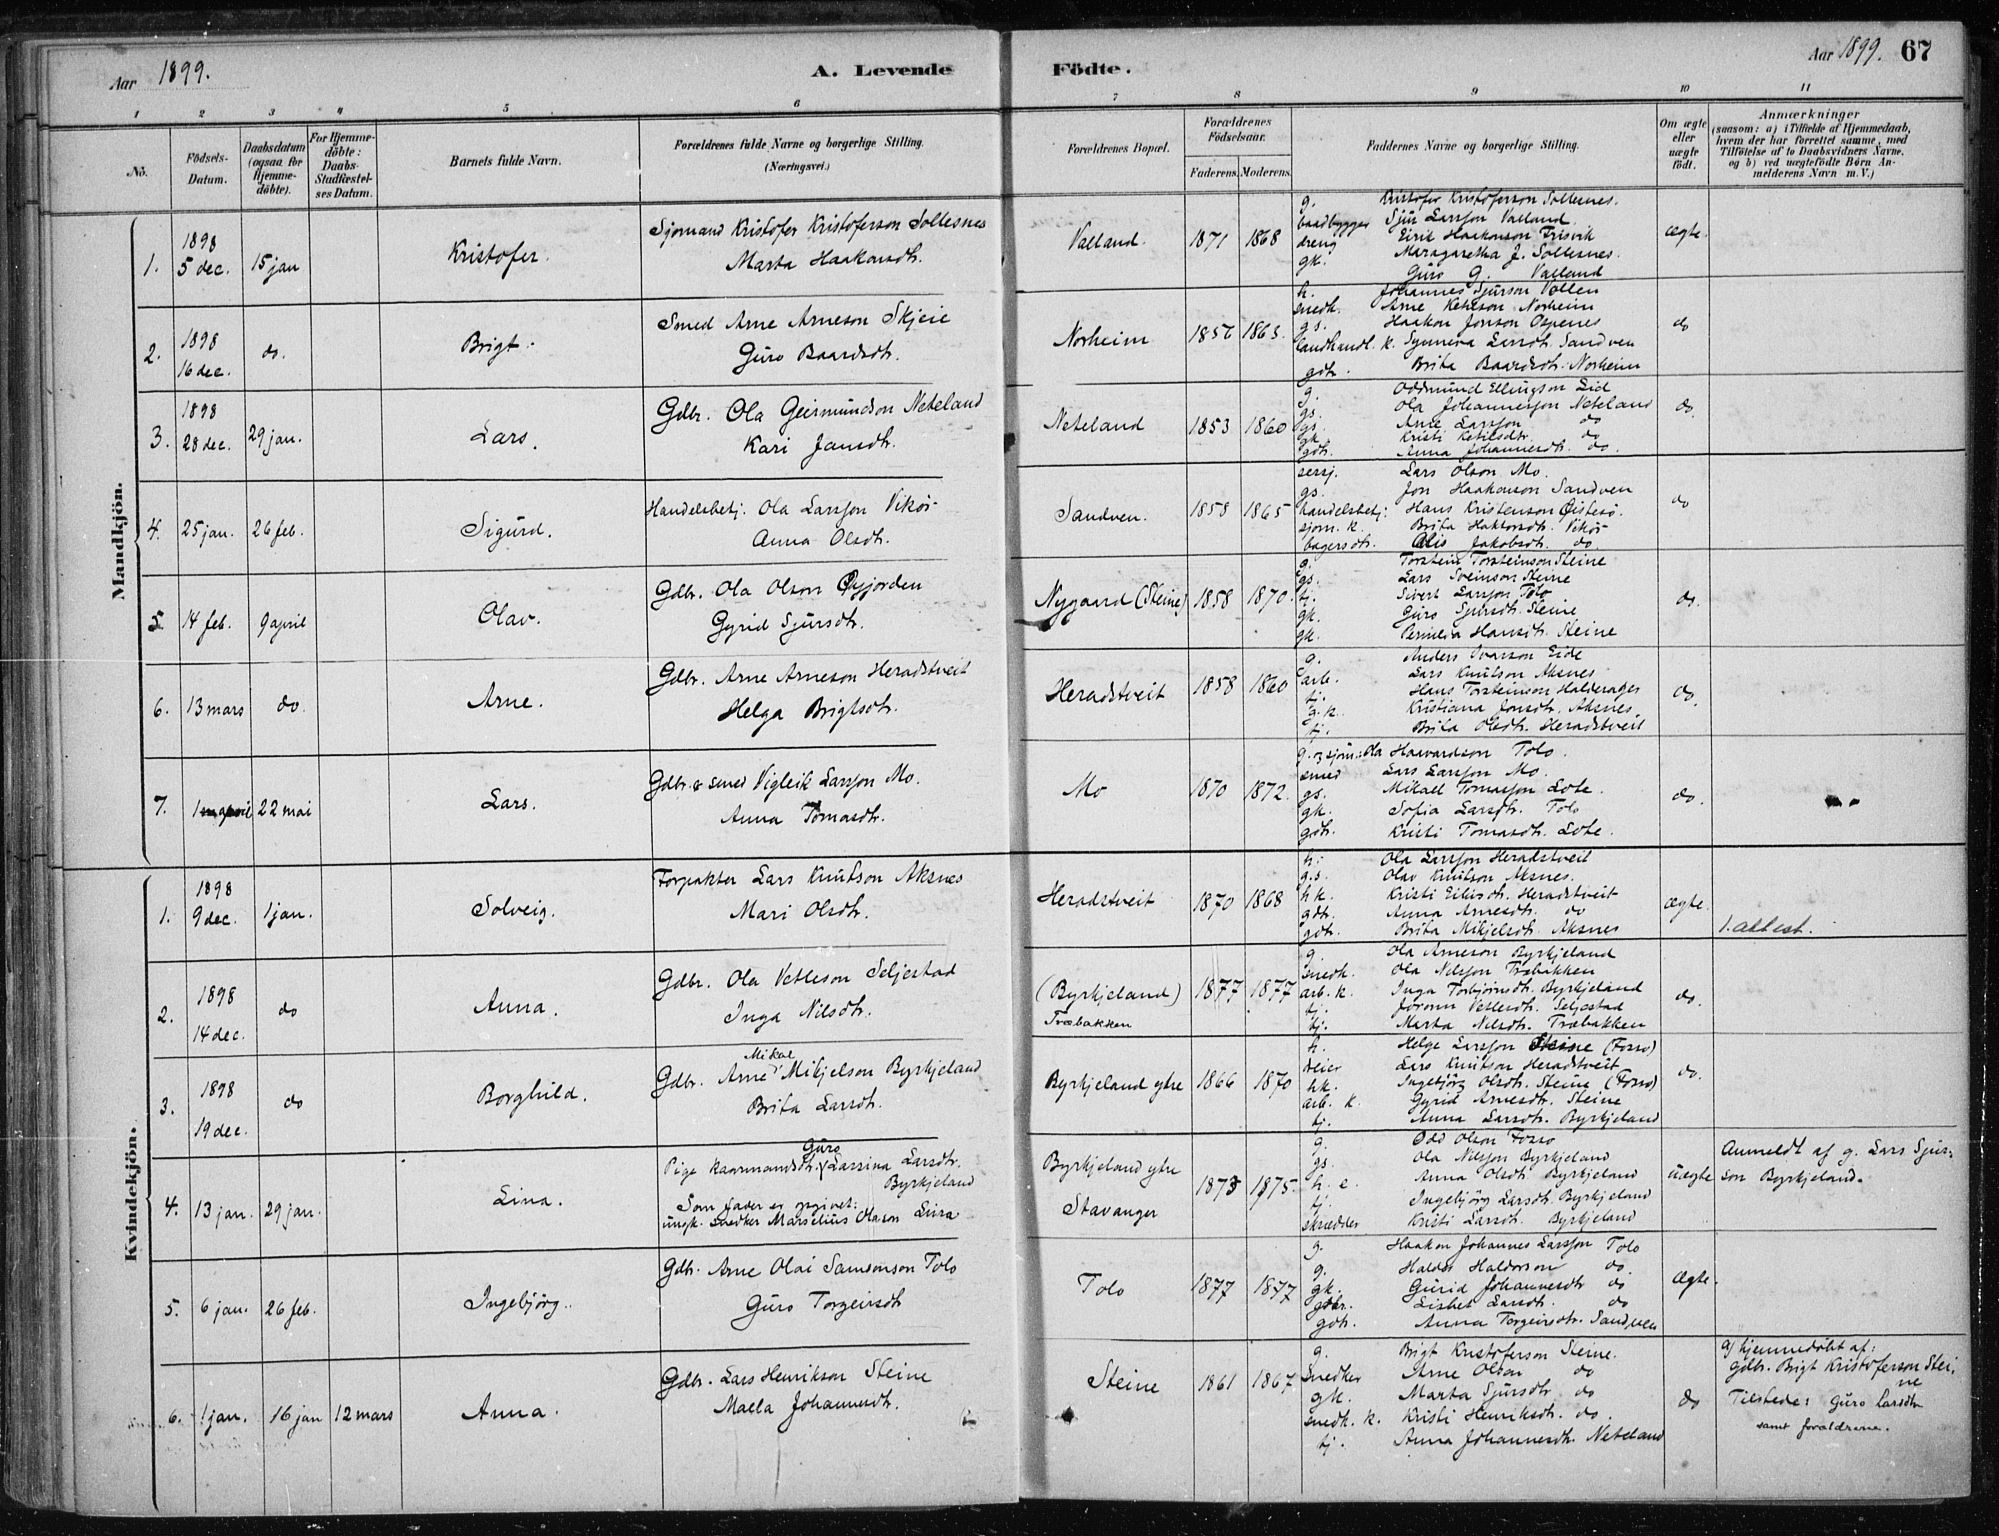 Aar 1899.
A. Levende
Födte.
Aar 1899. 67
1 2 3 4 5 6 7 8 9 10 11
No.
Födsels-Datum.
Daabsdatum (ogsaa for Hjemmedöbte).
For Hjemmedöbte: Daabs-Stadfæstelses Datum.
Barnets fulde Navn.
Forældrenes fulde Navne og borgerlige Stilling. (Næringsvei.)
Forældrenes Bopæl.
Forældrenes Födselsaar.
Faderens. Moderens.
Faddernes Navne og borgerlige Stilling.
Om ægte eller uægte födt.
Anmærkninger
(saasom: a) i Tilfælde af Hjemmedaab, hvem der har forrettet samme, med Tilföielse af to Daabsvidners Navne, og b) ved uægtefödte Börn Anmelderens Navn m. V.)
Mandkjön.
1. 1898 5 dec. 15 jan Kristofer.
Sjømand Kristofer Kristoferson Sollesnes
Marta Haakonsdtr.
Valland. 1871 1868 ægte.
g. Kristofer Kristoferson Sollesnes.
baadbygger Sjur Larsson Valland.
dreng Eirik Haakonson Trisvik
gk. Maragaretha J. Sollesnes.
Guro G. Valland
2. 1898 16 dec. do. Brigt.
Smed Arne Arneson Skjeie
Guro Baardsdtr.
Norheim 1856 1863. do
h. Johannes Sjurson Vallen
snedk. Arne Ketilson Norheim
gs. Haakon Jonson Ospenes
landhandl. k. Synneva Larsdtr. Sandven
gdtr. Brita Baardsdtr. Norheim
3. 1898 28 dec. 29 jan. Lars.
Gdbr. Ola Geirmundson Neteland
Kari Jansdtr.
Neteland 1853 1860 do.
g. Oddmund Ellingson Eid
gs. Ola Johannesson Neteland
gs. Arne Larsson do
gk. Kristi Ketilsdtr do
gdtr. Anna Johannesdtr. do.
4. 25 jan. 26 feb. Sigurd.
Handelsbetj. Ola Larsson Vikør
Anna Olsdtr.
Sandven. 1858 1865 do
Lars Olson Mo.
gs. Jon Haakonson Sandven
handelsbetj: Hans Kristenson Øistesø.
sjøm. k. Brita Haktorsdtr. Vikør
bagersdtr. Alis Jakobsdtr. do
5. 14 feb. 9 april Olav.
Gdbr. Ola Olson Øyjorden
Gyrid Sjursdtr.
Nygaard (Steine) 1858 1870. do.
g. Torstein Torsteinson Steine
gs. Lars Sveinson Steine
tj. Sivert Larsson Tolo
gk. Guro Sjursdtr. Steine
gk. Pernilia Hansdtr. Steine
6. 13 mars do. Arne.
Gdbr. Arne Arneson Heradstveit
Helga Brigtsdtr.
Heradstveit 1858 1860 do.
g. Anders Ivarson Eide
arb. Lars Knutson Aksnes
tj. Hans Torsteinson Halderager
g. k. Kristiana Jonsdtr. Aksnes
tj. Brita Olsdtr. Heradstveit
7. 1 22 mai Lars.
Gdbr. & smed Vigleik Larsson Mo.
Anna Tomasdtr.
Mo 1870 1872. do.
g. og sjøm.: Ola Haavardson Tolo.
smed Lars Larsson Mo.
gs. Mikael Tomasson Lote.
gk. Sofia Larsdtr. Tolo
gdtr. Kristi Tomasdtr. Lote.
Kvindekjön.
1. 1898 9 dec. 1 jan. Solveig.
Forpakter Lars Knutson Aksnes
Mari Olsdtr.
Heradstveit 1870 1868 ægte.
h. Ola Larsson Heradstveit
g.s. Olav Knutson Aksnes.
h k. Kristi Eilivsdtr. Heradstveit
gdtr. Anna Arnesdtr. do
gdtr. Brita Mikjelsdtr. Aksnes
1. attest.
2. 1898 14 dec. do Anna.
Gdbr. Ola Vetleson Seljestad
Inga Nilsdtr.
(Byrkjeland) Træbakken 1877 1877 do.
g. Ola Arneson Byrkjeland
snedk. Ola Nilsson Træbakken
arb. k. Inga Torbjørnsdtr. Byrkjeland
tj. Jorunn Vetlesdtr. Seljestad
tj. Marta Nilsdtr. Træbakken
3. 1898 19 dec. do Borghild.
Mikal
Gdbr. Arne Mikjelson Byrkjeland
Brita Larsdtr.
Byrkjeland ytre 1866 1870 do.
h. Helge Larsson Steine (Fosso)
Lars Knutson Heradstveit
hk. Ingebjörg Olsdtr. Steine (Fosso)
arb. k. Gyrid Arnesdtr. Steine
tj. Anna Larsdtr. Byrkjeland
4. 13 jan. 29 jan. Lina.
Guro
Pige Larsina Larsdtr. Byrkjeland
Som fader er opgivet:
ungk. snedker Marselius Olason Lura
Byrkjeland ytre
Stavanger
1873 1875 uægte
g. Odd Olson Fosso
gs. Ola Nilsson Byrkjeland
h. e. Anna Olsdtr. Byrkjeland
tj. Ingebjörg Larsdtr. Byrkjeland
skrædder Kristi Larsdtr. Byrkjeland
Anmeldt af g. Lars Sjurson Byrkjeland.
5. 6 jan. 26 feb. Ingebjörg.
Gdbr. Arne Olai Samsonson Tolo
Guro Torgeirsdtr
Tolo 1877 1877 ægte.
g. Haakon Johannes Larsson Tolo
g. Haldor Haldorson do.
gk. Gurid Johannesdtr do
gdtr. Lisbet Larsdtr. do
gdtr. Anna Torgeirsdtr. Sandven
6. 1 jan. 16 jan 12 mars Anna.
Gdbr. Lars Henrikson Steine
Maela Johannesdtr.
Steine 1861 1867 do
g. Brigt Kristoferson Steine.
Snedker Arne Olson do
gk. Marta Sjursdtr do
snedk. k. Kristi Henriksdtr. do.
tj. Anna Johannesdtr. Neteland
a) hjemmedøbt af:
gdbr. Brigt Kristoferson Steine
Tilstede: Guro Larsdtr
samt forældrene.